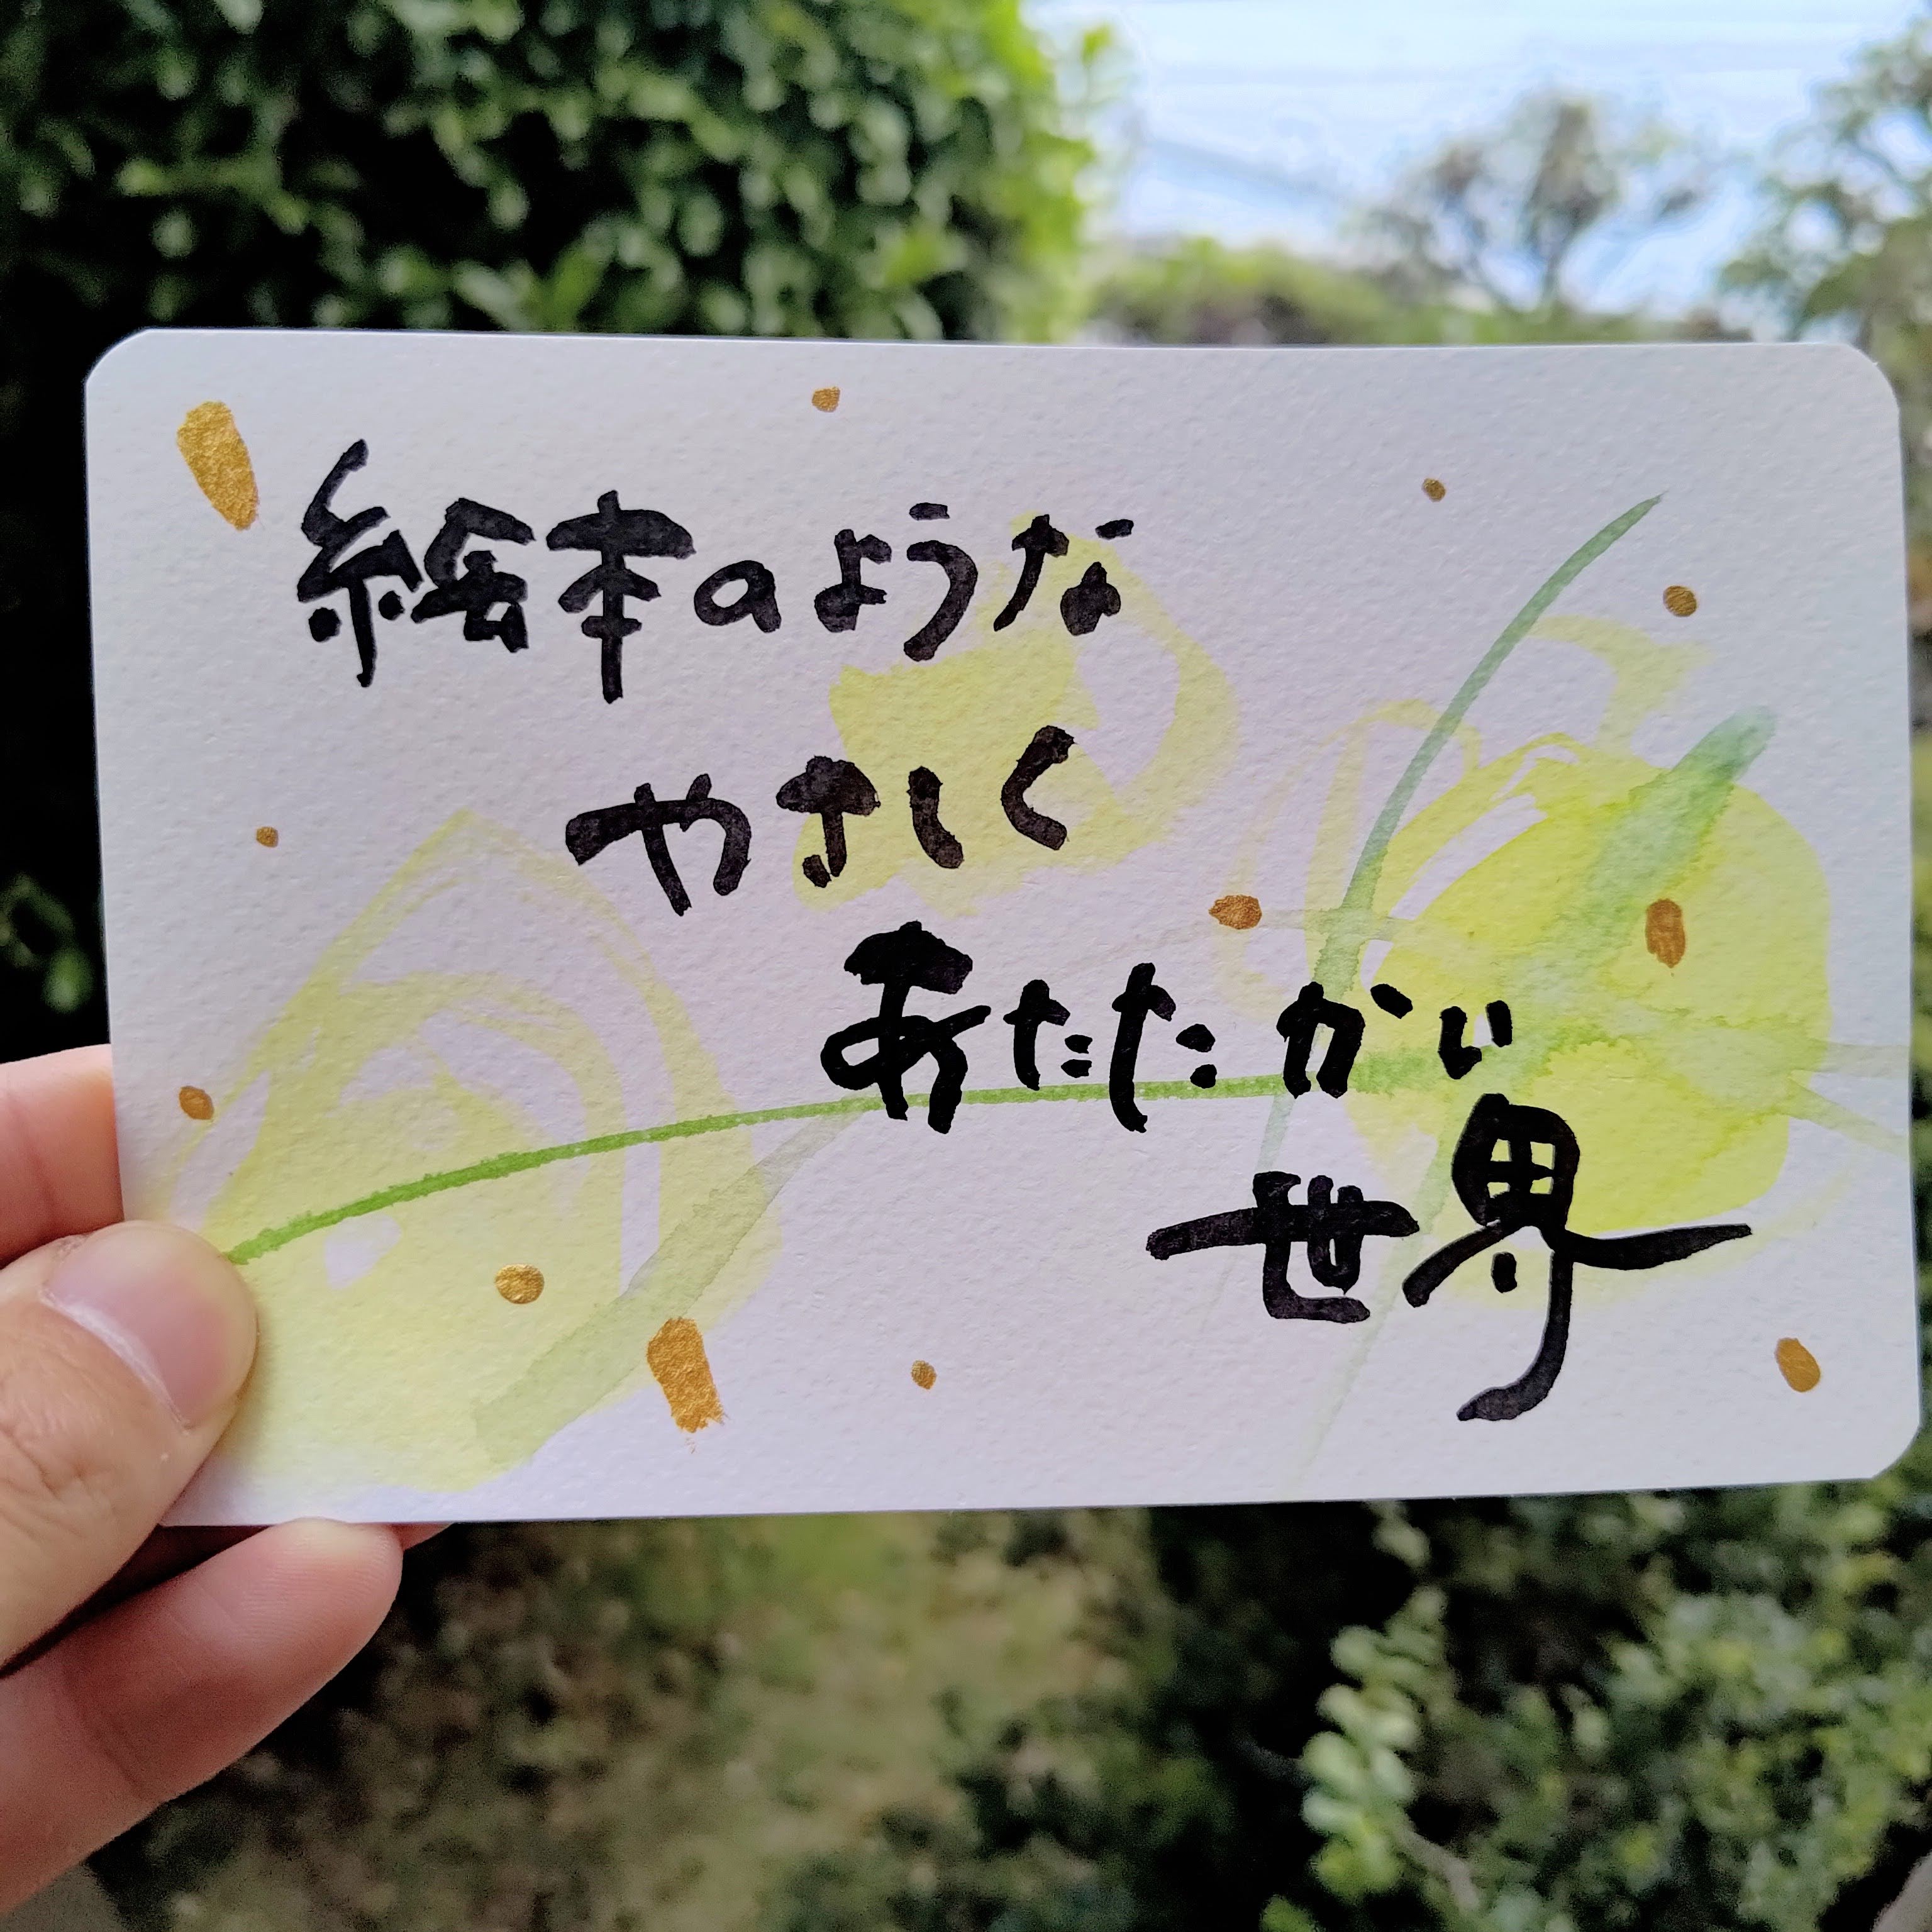 絵本のような
やさしく
あたたかい
世界